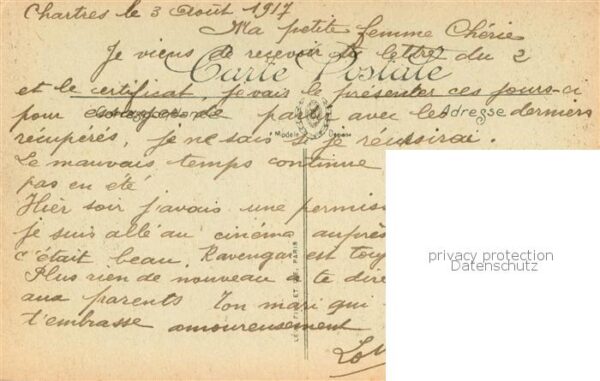 Chartres le 3 Août 1917
Ma petite femme Chérie
Je viens de recevoir ta lettre du 2
Carte Postale
et le certificat, je vais le présenter ces jours-ci
pour de partir avec les derniers
Adresse
récupérés, je ne sais si je réussirai.
Modèle Déposé
Le mauvais temps continue
pas en été
Hier soir j'avais une permis
je suis allé au cinéma auprès
c'était beau. Ravengar est touj
Plus rien de nouveau à te dire
aux parents Ton mari qui
t'embrasse amoureusement
PARIS
privacy protection
Datenschutz